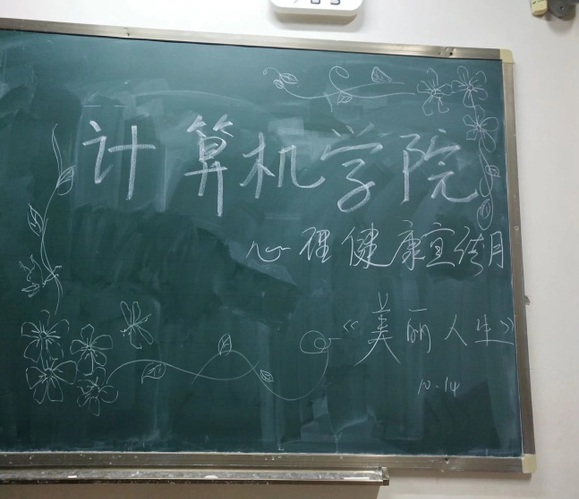 计算机学院
心理健康宣传月
《美丽人生》
10.14